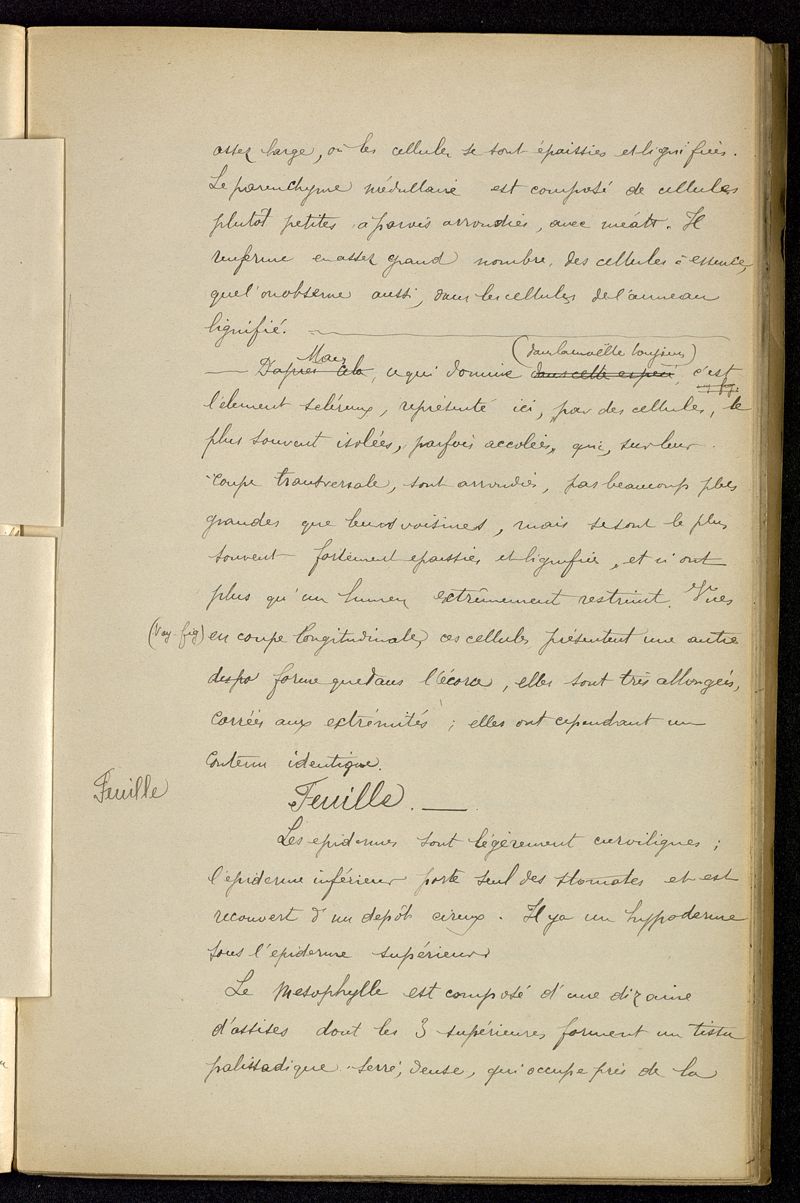 assez large, où les cellules se sont épaissies et lignifiées.
Le parenchyme médullaire est composé de cellules
plutôt petites à parois arrondies, avec méats. Il
renferme en assez grand nombre, des cellules à essence,
que l'on observe aussi, dans les cellules de l'anneau
lignifié.
Mais (dans la moëlle toujours)
— D'après cela, ce qui domine dans cette espèce, c'est
l'élément scléreux, représenté ici, par des cellules, le
plus souvent isolées, parfois accolées, qui, sur leur
coupe transversale, sont arrondies, pas beaucoup plus
grandes que leurs voisines, mais se sont le plus
souvent fortement epaissies et lignifiées, et n'ont
plus qu'un lumen extrêmement restreint. Vues
(Voy-fig) en coupe longitudinale, ces cellules présentent une autre
dispo forme que dans l'écorce, elles sont très allongées,
carrées aux extrémités ; elles ont cependant un
contenu identique.
Feuille
Feuille. —
Les epidermes sont légèrement curvilignes ;
l'épiderme inférieur porte seul des stomates et est
recouvert d'un depôt cireux. Il y a un hypoderme
sous l'epiderme supérieur
Le Mesophylle est composé d'une dizaine
d'assises dont les 3 supérieures forment un tissu
palissadique serré, dense, qui occupe près de la